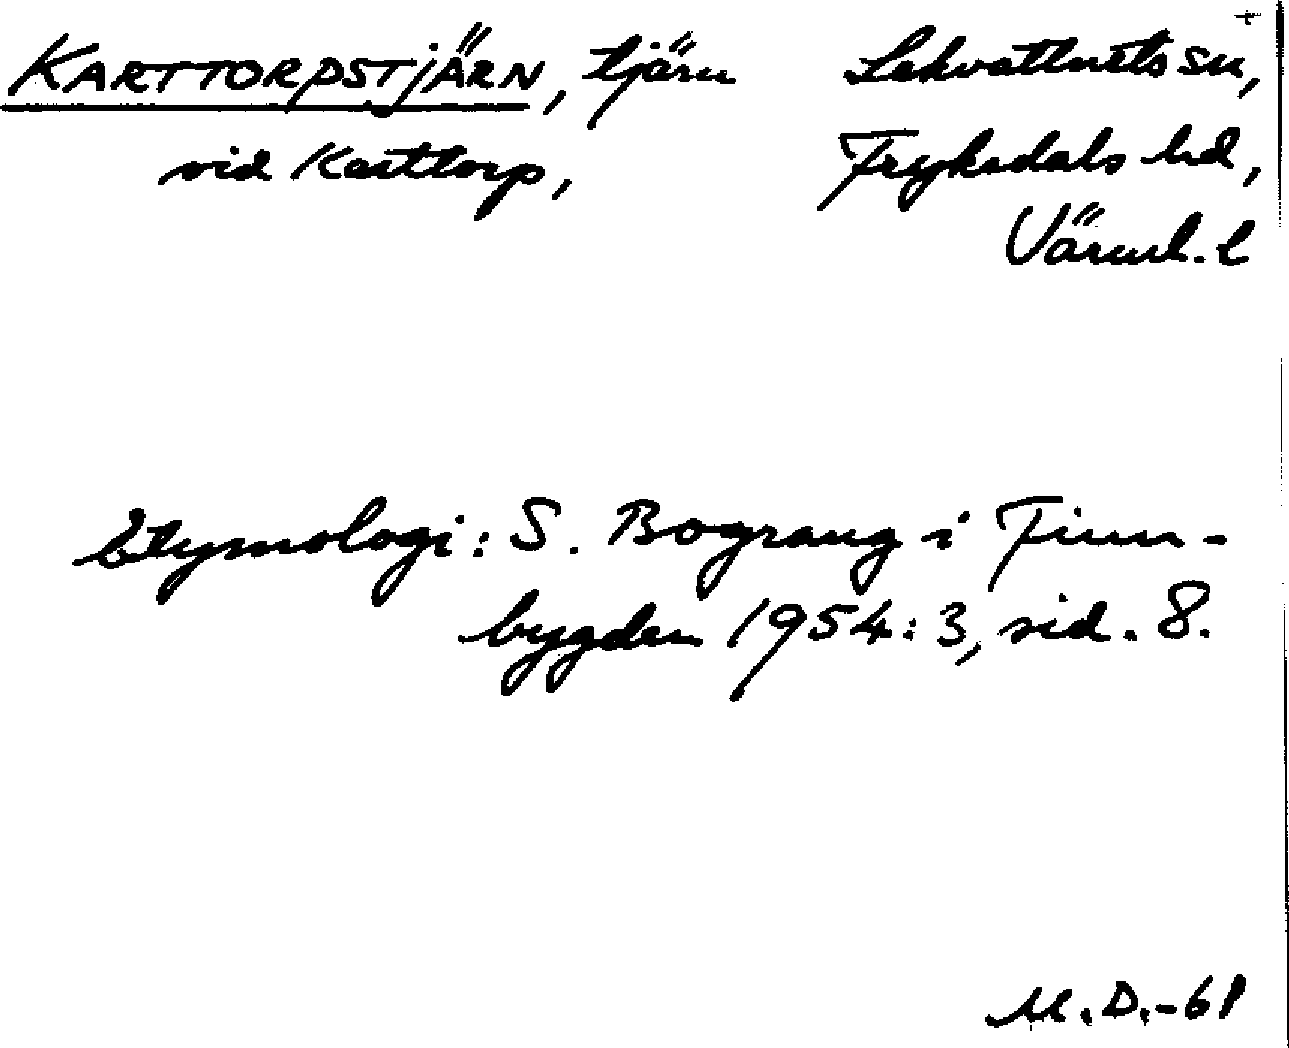 KARTTORPSTJÄRN, tjärn Lekvattnets sn,
vid Karttorp, Fryksdals hd,
Värml. l
Etymologi: S. Bograng i Finn-
bygden 1954:3, sid. 8.
M.D.-61